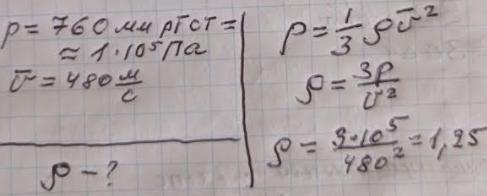 p = 760 мм рт ст =
≈ 1·10⁵ Па
v̄ = 480 м/с
ρ - ?
p = 1/3 ρ v̄²
ρ = 3p/v̄²
ρ = 3·10⁵/480² = 1,25